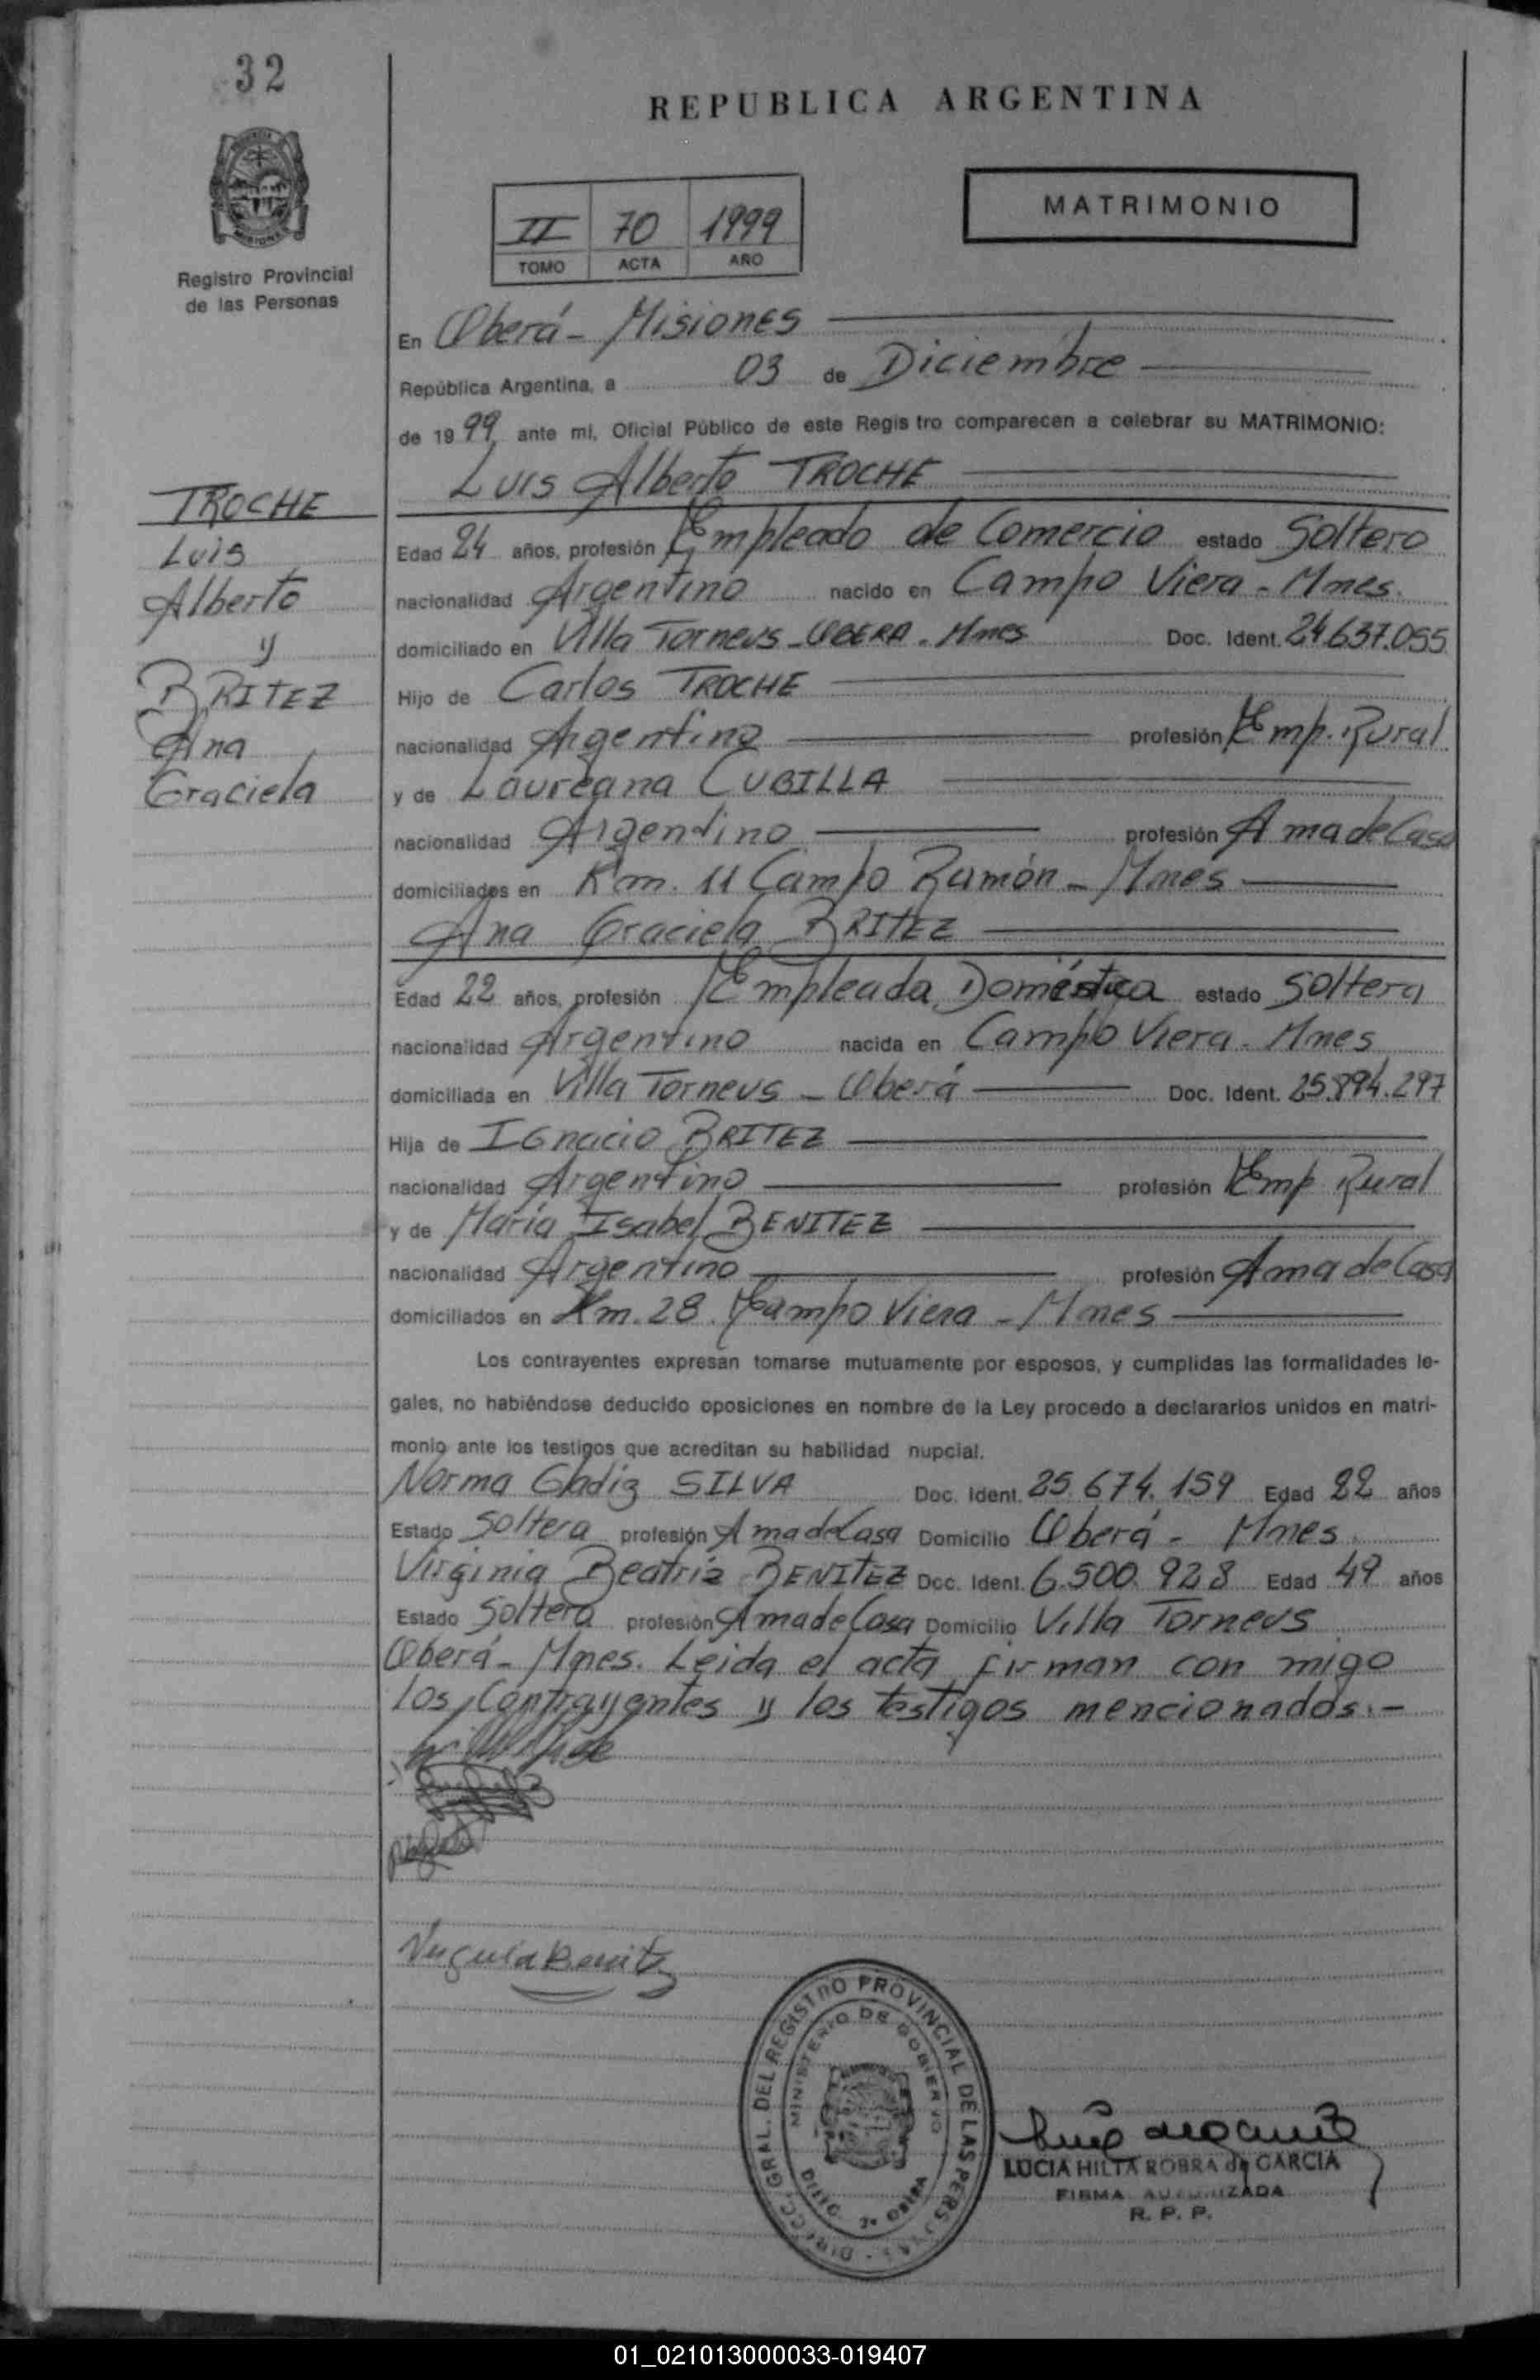 32
REPUBLICA ARGENTINA
MATRIMONIO
II 70 1999
TOMO ACTA AÑO
Registro Provincial
de las Personas
En Oberá - Misiones
República Argentina, a 03 de Diciembre
de 19 99 ante mi, Oficial Público de este Regis tro comparecen a celebrar su MATRIMONIO:
Luis Alberto TROCHE
TROCHE
Luis
Alberto
y
BRITEZ
Ana
Graciela
Edad 24 años, profesión Empleado de Comercio estado Soltero
nacionalidad Argentino nacido en Campo Viera - Mnes.
domiciliado en Villa Torneus - OBERA - Mnes Doc. Ident. 24.637.055
Hijo de Carlos TROCHE
nacionalidad Argentino profesión Emp. Rural
y de Laureana CUBILLA
nacionalidad Argentino profesión Ama de Casa
domiciliados en Km. 11 Campo Ramón - Mnes
Ana Graciela BRITEZ
Edad 22 años, profesión Empleada Doméstica estado Soltera
nacionalidad Argentino nacida en Campo Viera - Mnes
domiciliada en Villa Torneus - Oberá Doc. Ident. 25.894.297
Hija de IGnacio BRITEZ
nacionalidad Argentino profesión Emp Rural
y de María Isabel BENITEZ
nacionalidad Argentino profesión Ama de Casa
domiciliados en Km. 28. Campo Viera - Mnes
Los contrayentes expresan tomarse mutuamente por esposos, y cumplidas las formalidades le-
gales, no habiéndose deducido oposiciones en nombre de la Ley procedo a declararlos unidos en matri-
monio ante los testigos que acreditan su habilidad nupcial.
Norma Gladiz SILVA Doc. Ident. 25.674.159 Edad 22 años
Estado Soltera profesión Ama de Casa Domicilio Oberá - Mnes.
Virginia Beatriz BENITEZ Doc. Ident. 6.500.928 Edad 49 años
Estado Soltera profesión Ama de Casa Domicilio Villa Torneus
Oberá - Mnes. Leida el acta firman con migo
los Contrayentes y los testigos mencionados.-
Virginia Benitez
DIRECC. GRAL. DEL REGISTRO PROVINCIAL DE LAS PERSONAS
MINISTERIO DE GOBIERNO
OBERA
LUCIA HILTA ROBRA de GARCIA
FIRMA AUTORIZADA
R. P. P.
01_021013000033-019407